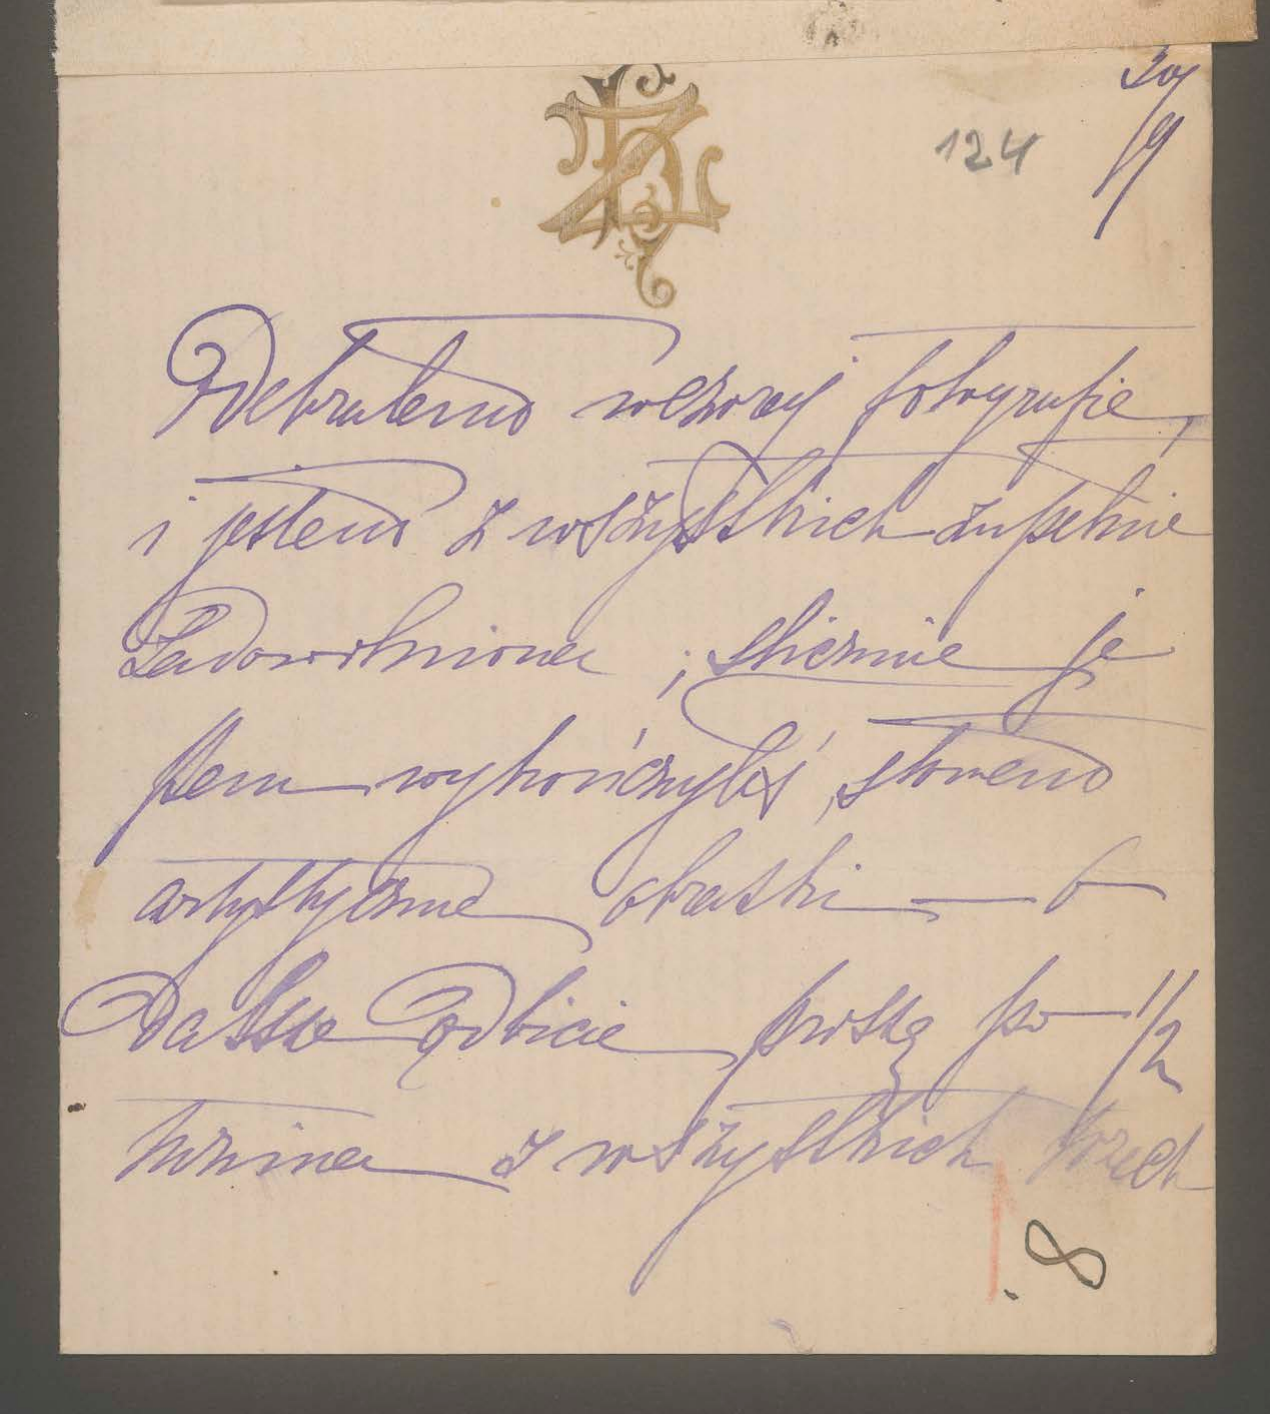 124
Odebrałem wczoraj fotografie,
i jestem z wszystkich zupełnie
zadowolniona; ślicznie je
Pan wykończyłeś, słowem
artystyczne obrazki — o
Dalsze odbicie proszę po 1/2
tuzina z wszystkich trzech
8